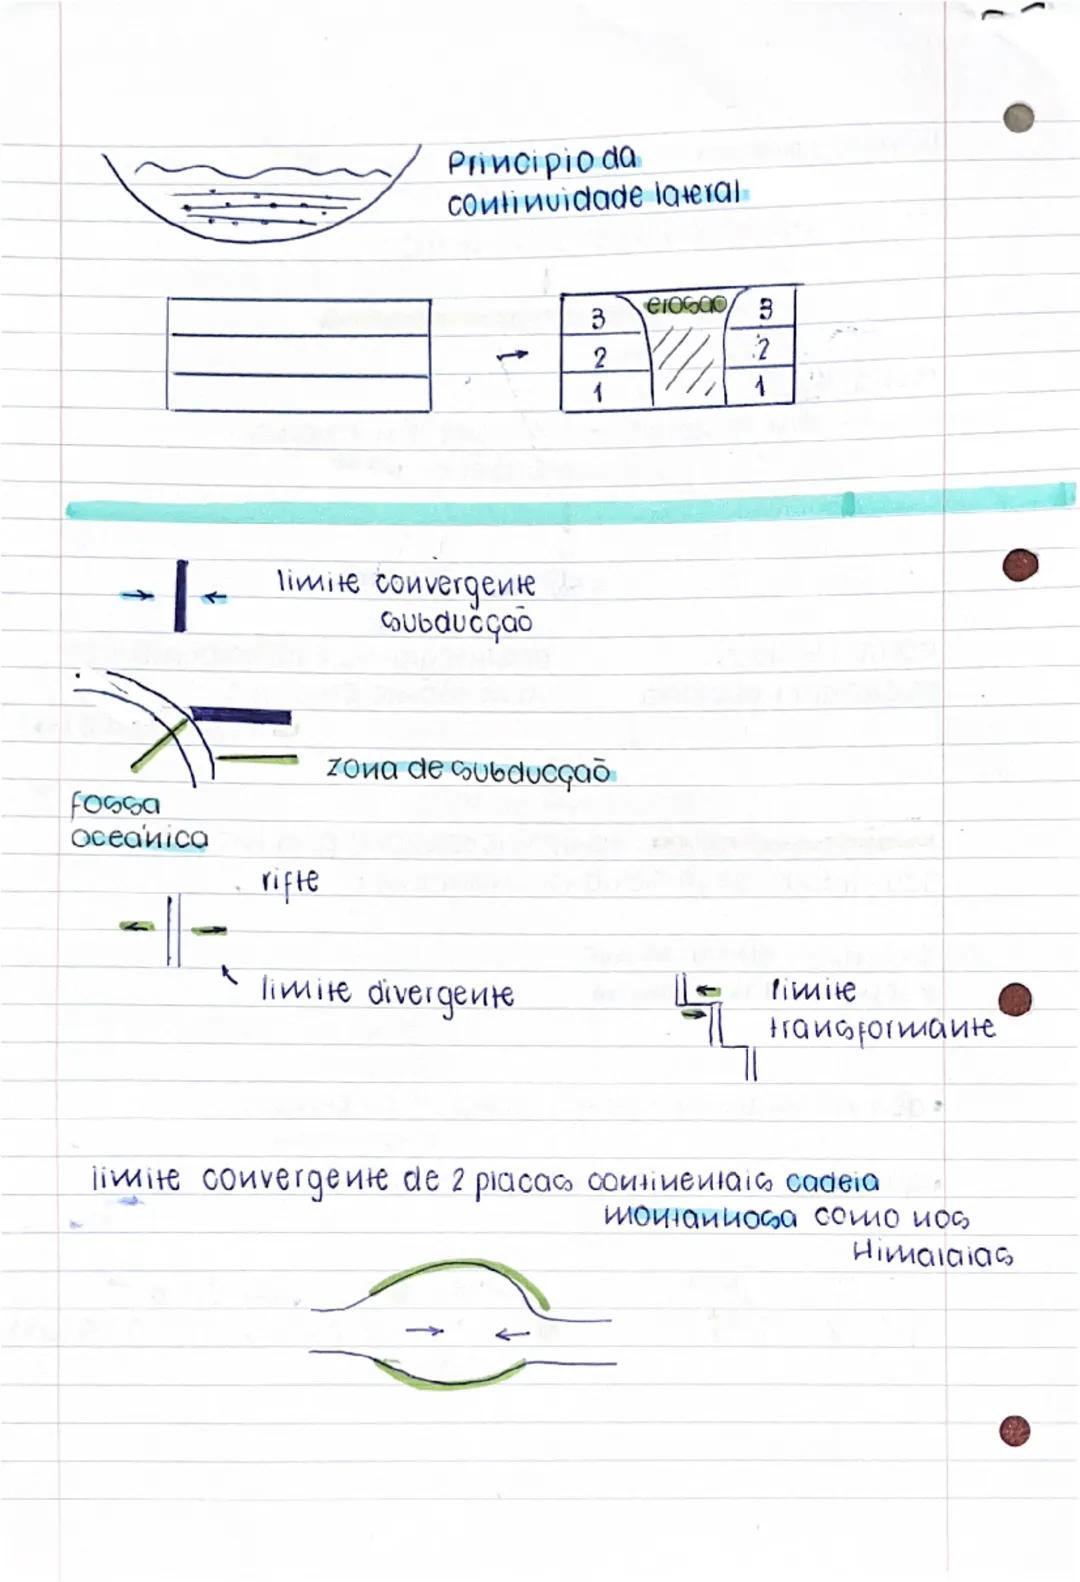 Principio da
continuidade lateral
3 erosão 3
2 2
1 1
limite convergente
subducção
zona de subducção
fossa
oceânica
rifte
limite divergente
limite
transformante
limite convergente de 2 placas continentais cadeia
montanhosa como nos
Himalaias